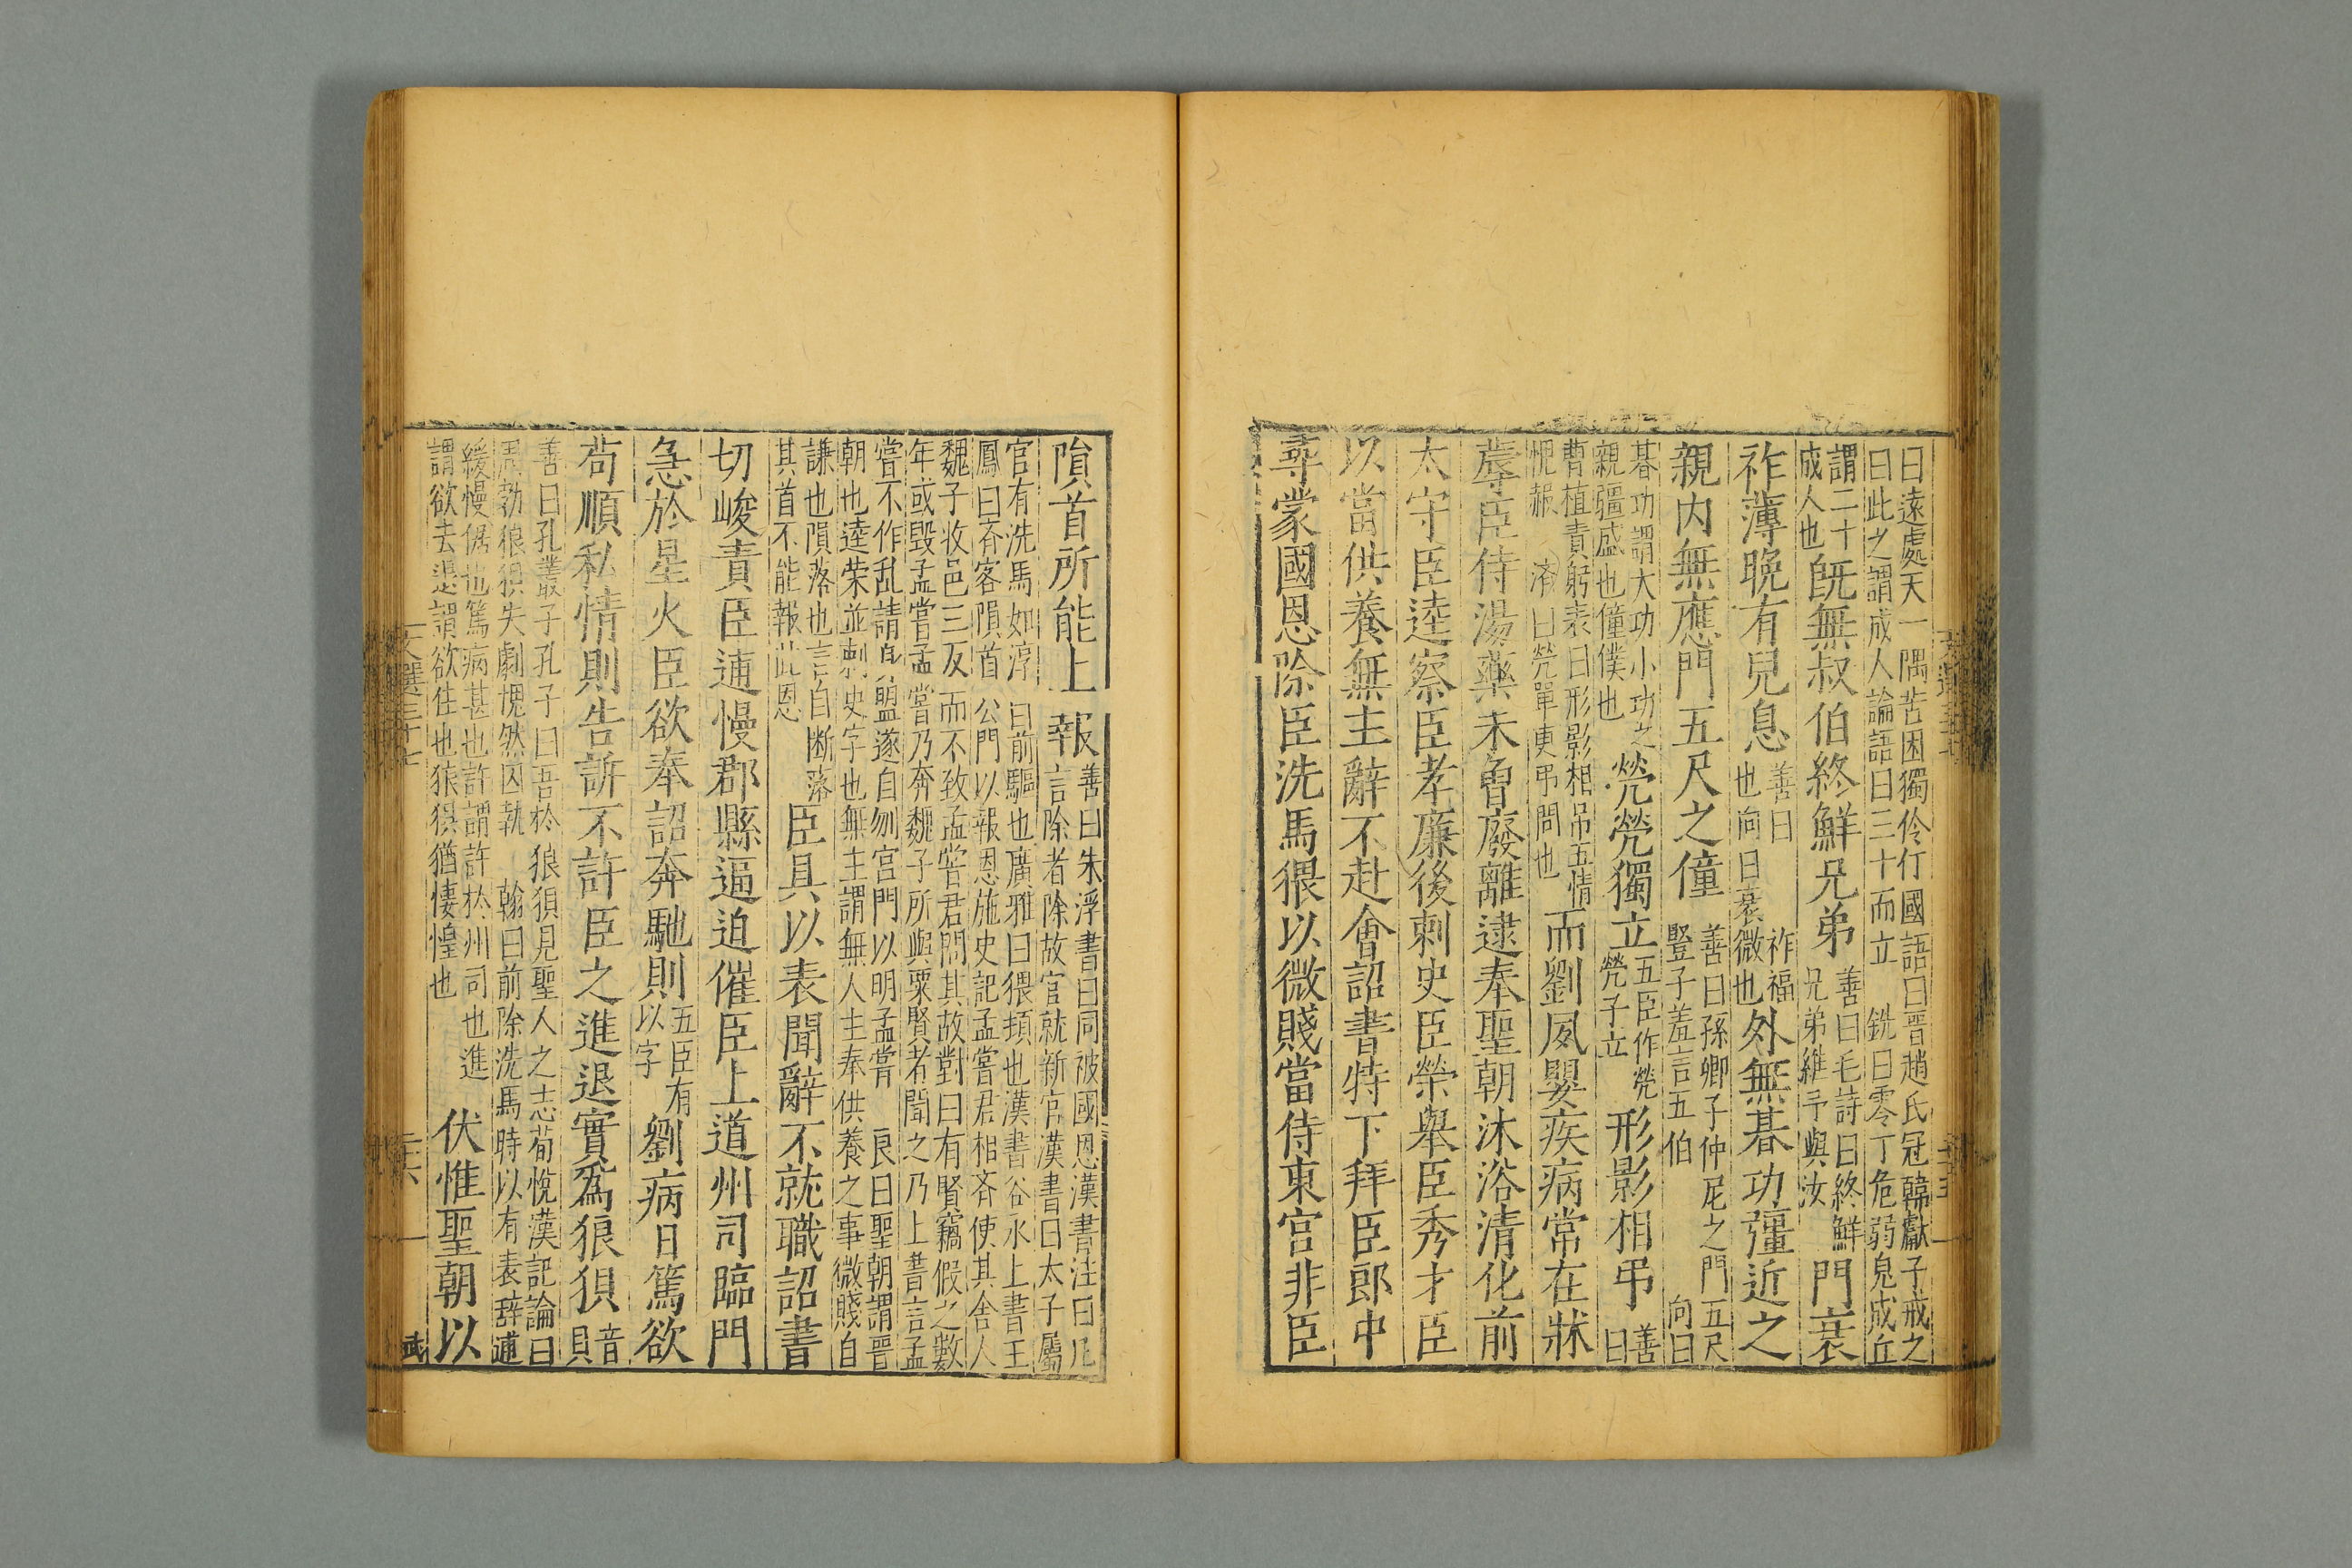 曰遠處天一隅苦困獨伶仃國語曰晉趙氏冠韓獻子戒之
曰此之謂成人論語曰三十而立 銑曰零丁危弱皃成丘
謂二十成人也既無叔伯終鮮兄弟善曰毛詩曰終鮮兄弟維予與汝門衰
祚薄晚有兒息善曰 祚福也向曰衰微也外無朞功彊近之
親内無應門五尺之僮善曰孫卿子仲尼之門五尺豎子羞言五伯 向曰
朞功謂大功小功之親彊盛也僮僕也煢煢獨立五臣作煢煢子立形影相弔善曰
曹植責躬表曰形影相吊五情愧赧 濟曰煢單更弔問也而劉夙嬰疾病常在牀
蓐臣侍湯藥未曾廢離逮奉聖朝沐浴清化前
太守臣逵察臣孝廉後刺史臣榮舉臣秀才臣
以當供養無主辭不赴會詔書特下拜臣郎中
尋蒙國恩除臣洗馬猥以微賤當侍東宫非臣
隕首所能上報善曰朱浮書曰同被國恩漢書注曰凡言除者除故官就新官漢書曰太子屬
官有洗馬如淳曰前驅也廣雅曰猥頓也漢書谷永上書王
鳳曰齐客隕首公門以報恩施史記孟嘗君相齐使其舍人
魏子收邑三反而不致孟嘗君問其故對曰有賢竊假之數
年或毀孟嘗孟嘗乃奔魏子所與粟賢者聞之乃上書言孟
嘗不作乱請身盟遂自刎宫門以明孟嘗 良曰聖朝謂晉
朝也逵荣並刺史字也無主謂無人主奉供養之事微賤自
謙也隕落也言自断落其首不能報此恩臣具以表聞辭不就職詔書
切峻責臣逋慢郡縣逼迫催臣上道州司臨門
急於星火臣欲奉詔奔馳則五臣有以字劉病日篤欲
苟順私情則告訴不許臣之進退實爲狼狽音貝
善曰孔叢子孔子曰吾於狼狽見聖人之志荀悅漢記論曰
周勃狼狽失劇愧然囚執 翰曰前除洗馬時以有表辞逋
緩慢倨也篤病甚也許謂許於州司也進
謂欲去退謂欲住也狼狽猶悽惶也伏惟聖朝以
文選三十七
三六
武